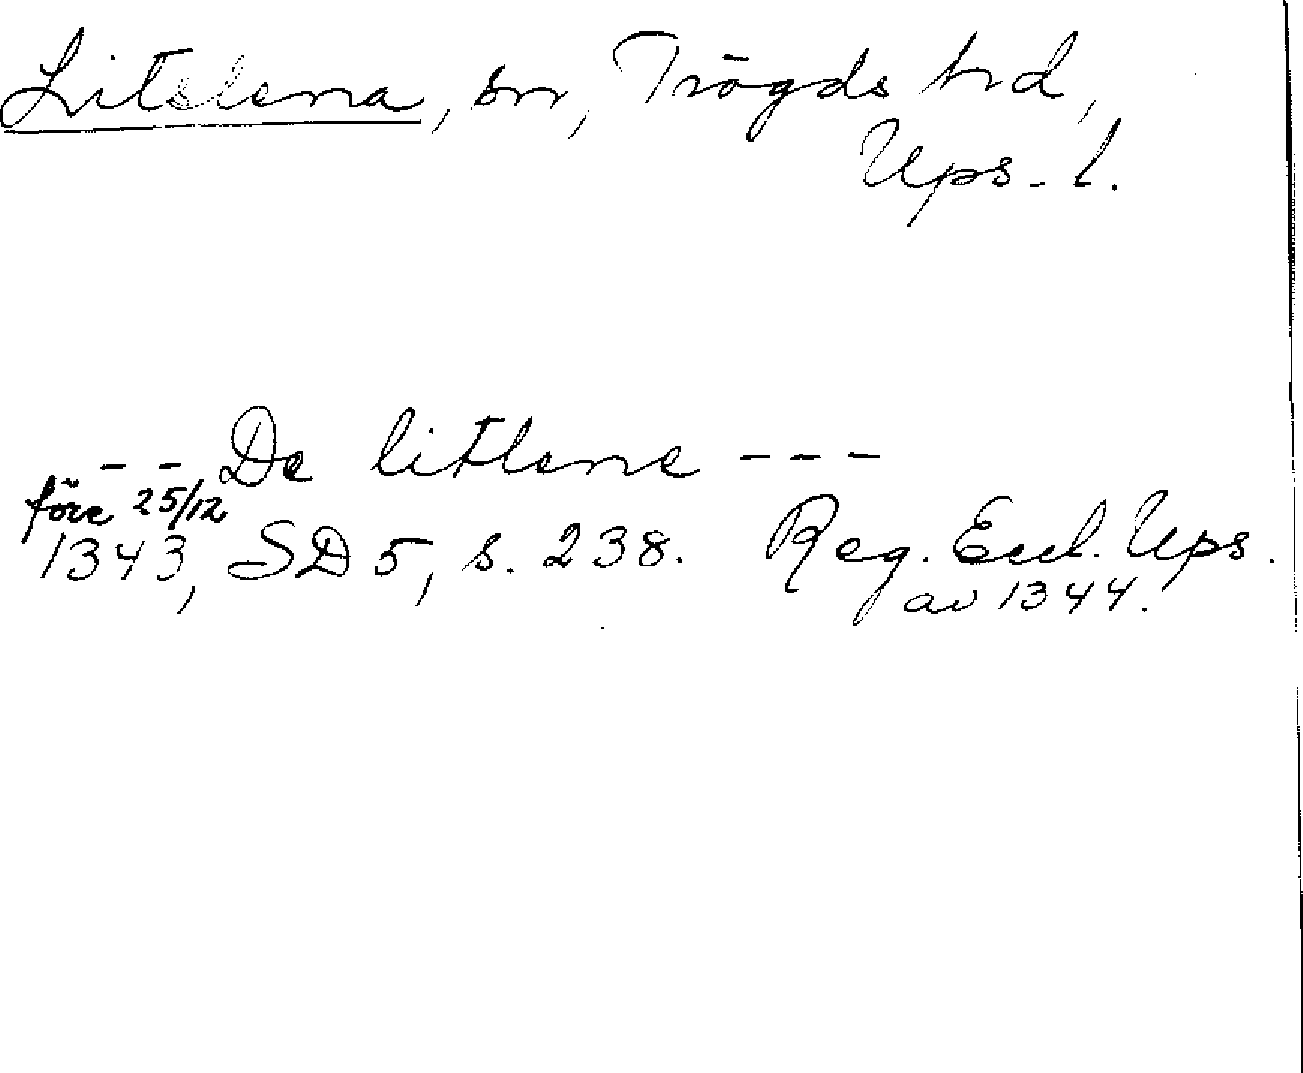 Litslena, sn, Trögds hd,
Ups. l.
- - De litlene - - -
före 25/12
1343, SD 5, s. 238. Reg. Eccl. Ups.
av 1344.